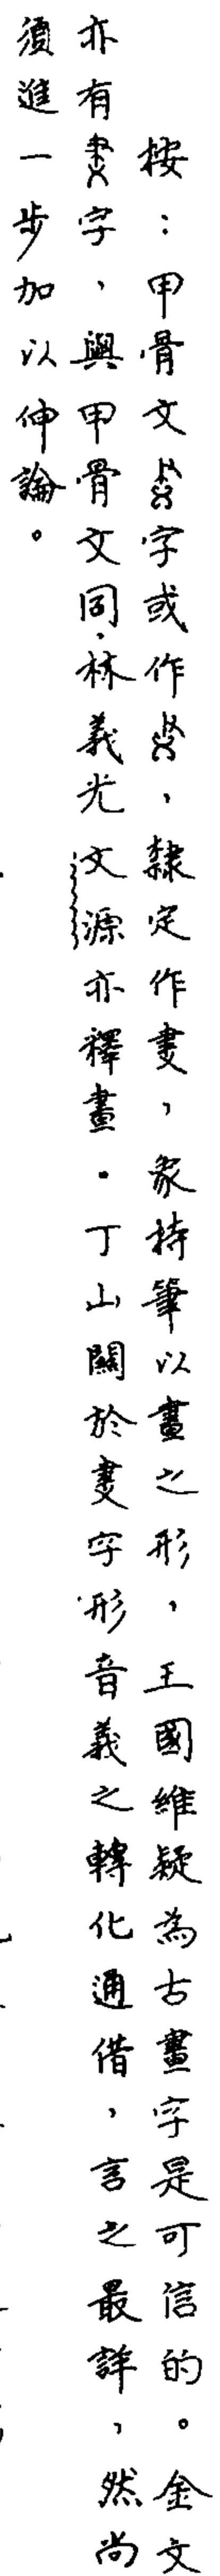 按：甲骨文字或作，隸定作㕞，象持筆以畫之形，王國維疑為古畫字是可信的。金文
亦有字，與甲骨文同，林義光文源亦釋畫。丁山關於㕞字形音義之轉化通借，言之最詳，然尚
須進一步加以伸論。